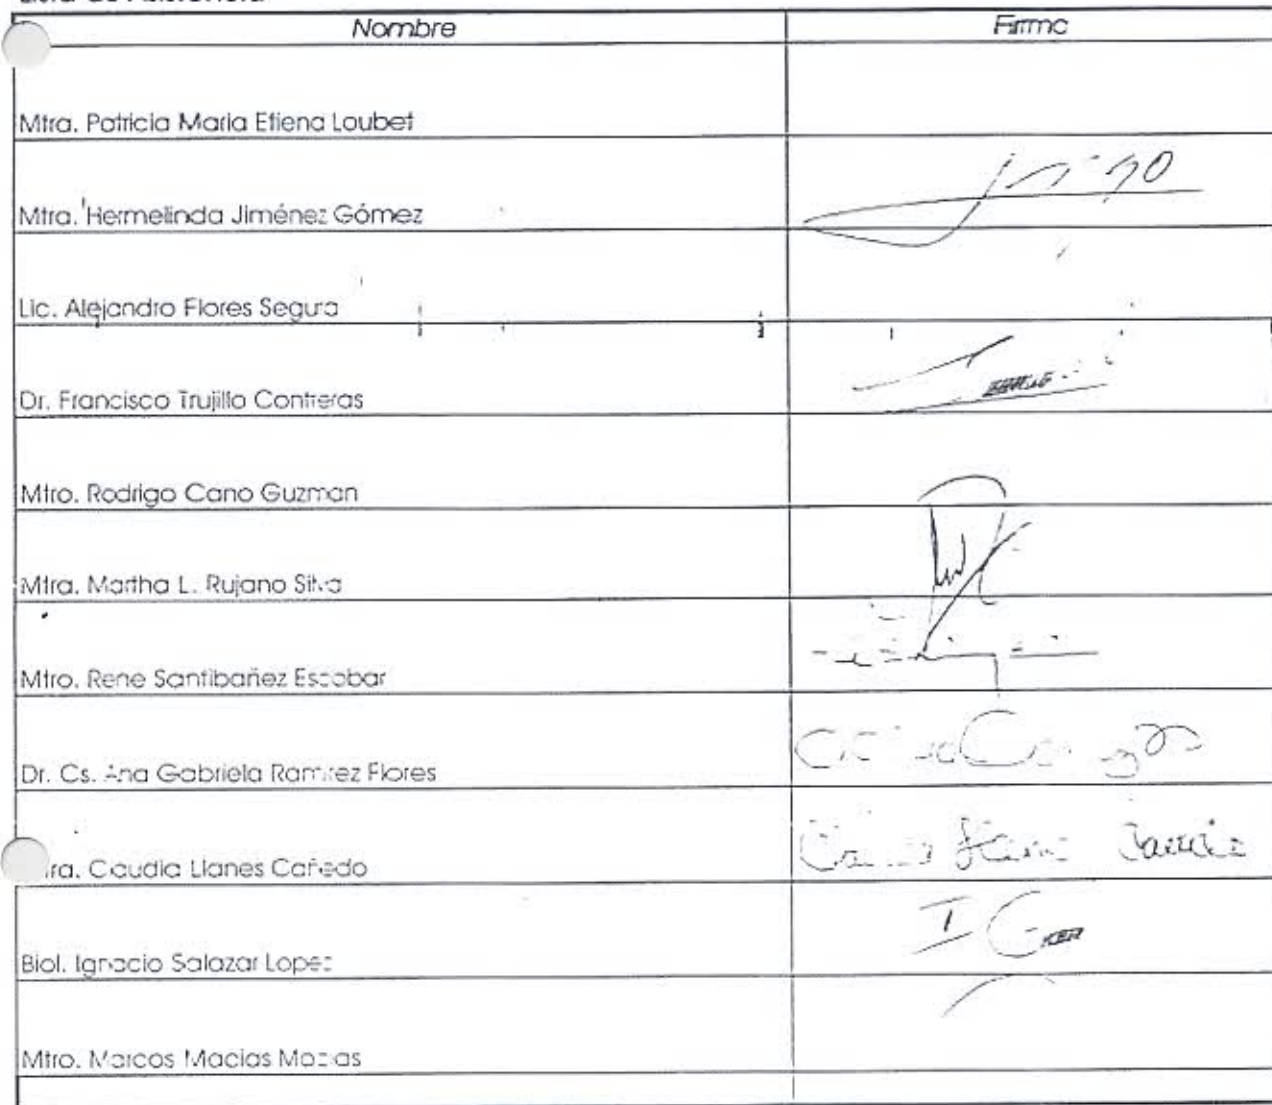 Lista de Asistencia
Nombre Firma
Mtra. Patricia Maria Etiena Loubet
Mtra. Hermelinda Jiménez Gómez
Lic. Alejandro Flores Segura
Dr. Francisco Trujillo Contreras
Mtro. Rodrigo Cano Guzman
Mtra. Martha L. Rujano Silva
Mtro. Rene Santibañez Escobar
Dr. Cs. Ana Gabriela Ramirez Flores
Mtra. Claudia Llanes Cañedo
Biol. Ignacio Salazar Lopez
Mtro. Marcos Macias Macias